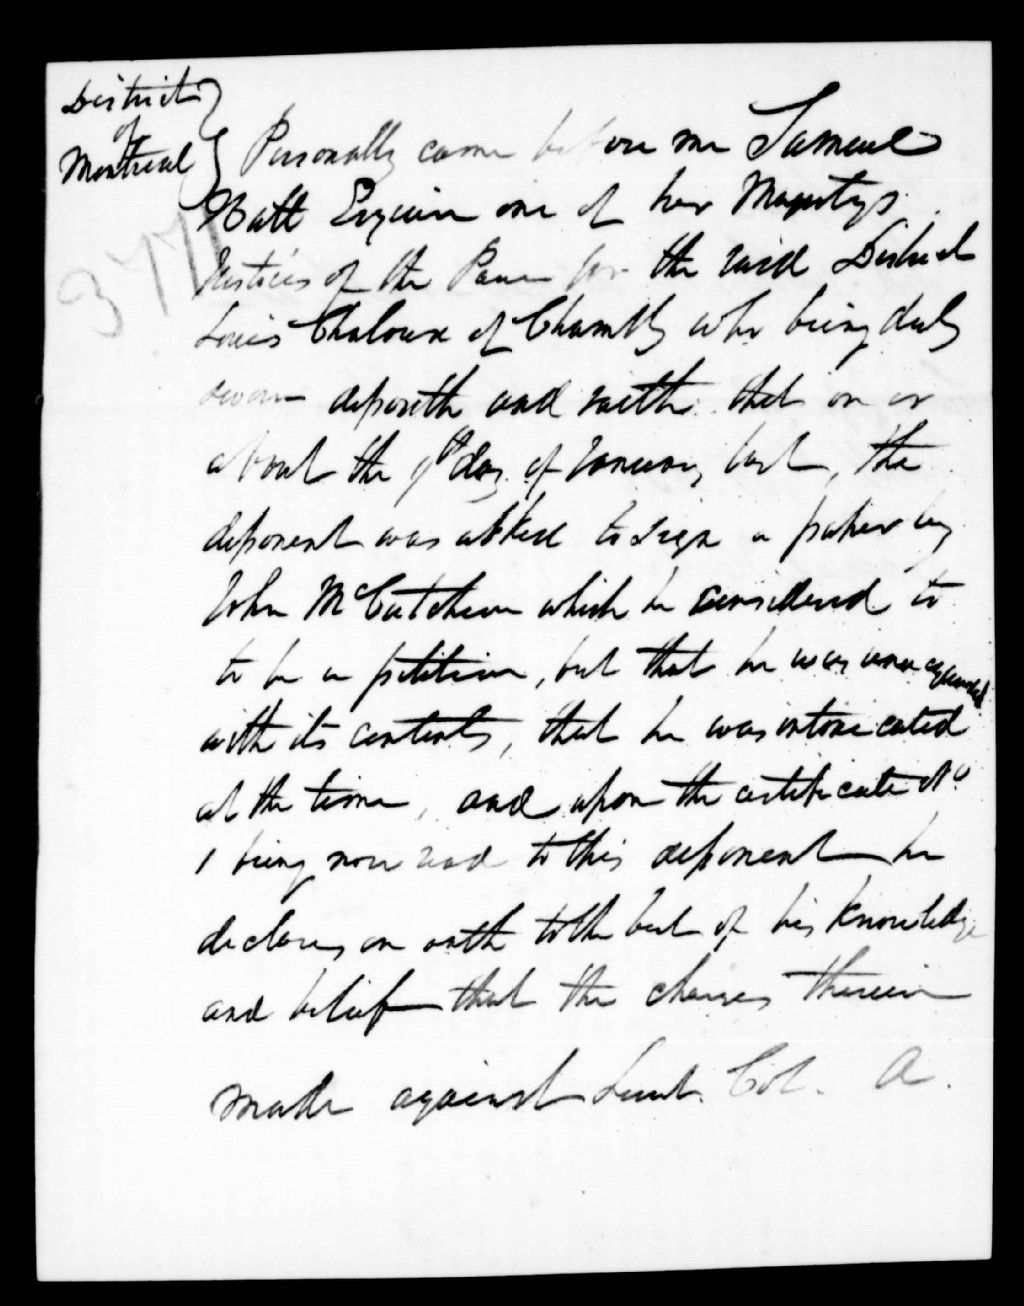 District
of
Montreal
Personally came before me Samuel
Hatt Esquire one of her Majestys
Justices of the Peace for the said District
Louis Chaloux of Chambly who being duly
sworn deposeth and saith that on or
about the 9th day of January last, the
deponent was asked to sign a paper by
John McCutcheon which he considered to
to be a petition, but that he was unacquainted
with its contents, that he was intoxicated
at the time, and upon the certificate No
1 being now read to this deponent he
declares on oath to the best of his knowledge
and belief that the charges therein
made against Lieut. Col. A.
377